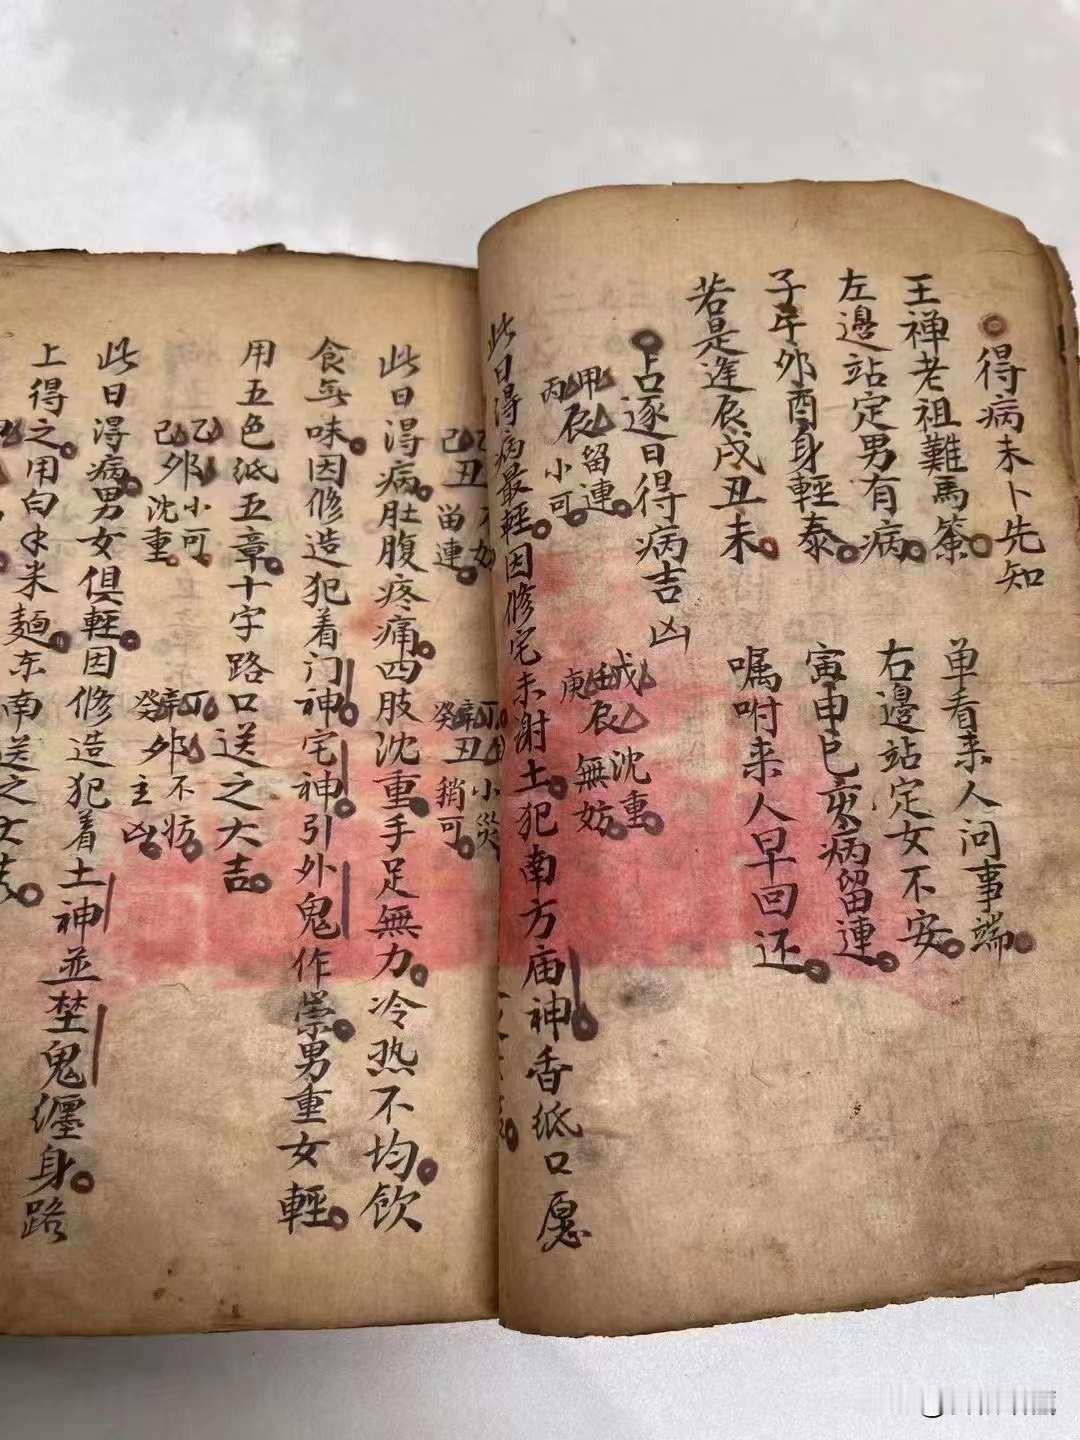 得病未卜先知
王禅老祖難馬策 单看来人问事端
左邊站定男有病 右邊站定女不安
子午卯酉身輕泰 寅申巳亥病留連
若是逢辰戌丑未 嘱咐来人早回还
占逐日得病吉凶
甲辰留連 丙辰小可 戊辰沈重 壬庚辰無妨
此日得病最輕因修宅未謝土犯南方庙神香纸口愿
己丑留連 丁丑小災 辛癸丑稍可
此日得病肚腹疼痛四肢沈重手足無力冷热不均飲
食無味因修造犯着门神宅神引外鬼作祟男重女輕
用五色纸五章十字路口送之大吉
乙卯小可 己卯沈重 丁辛卯不妨 癸卯主凶
此日得病男女俱輕因修造犯着土神並埜鬼缠身路
上得之用白米麺东南送之大吉